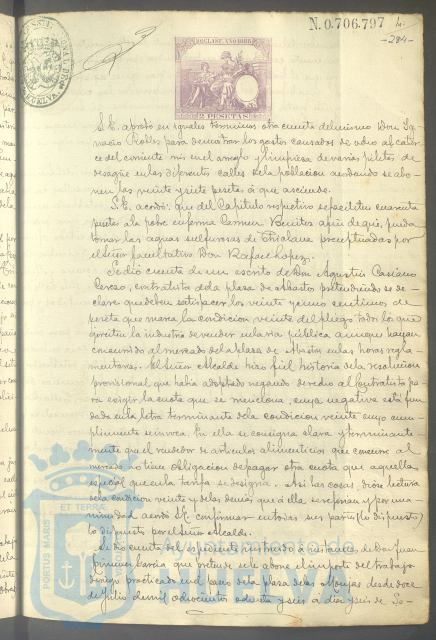 N.0.706.797
-284-
AÑO 1886
2 PESETAS
HUELVA
S.E. aprobó en iguales términos otra cuenta del mismo Don Ig-
nacio para demostrar los gastos causados de ocho al cator-
ce del corriente mes en el arreglo y limpieza de varias piletas de
desagüe en las diferentes calles de la población acordando se abo-
nen las veinte y siete pesetas á que asciende.
S.E. acordó: que del Capítulo respectivo se faciliten cuarenta
pesetas á la pobre enferma Carmen Benítez á fin de que pueda
tomar las aguas sulfurosas de Chiclana preceptuadas por
el Señor facultativo Don Rafael López.
Se dió cuenta de un escrito de Don Agustín Casiano
Cerezo, contratista de la plaza de abastos pretendiendo se de-
clare que deben satisfacer los veinte y cinco centimos de
peseta que marca la condición veinte del pliego todos los que
ejerciten la industria de vender en la vía pública aunque hayan
concurrido al mercado de la plaza de Abastos en las horas regla-
mentarias. El Señor Alcalde hizo fiel historia de la resolución
provisional que había adoptado negando derecho al contratista pa-
ra exigir la cuota que se menciona, cuya negativa está fun-
dada en la letra terminante de la condición veinte cuyo cum-
plimiento se invoca. En ella se consigna clara y terminante
mente que el vendedor de articulos alimenticios que concurre al
mercado no tiene obligación de pagar otra cuota que aquella
especial que en la tarifa se designa. Así las cosas, dióse lectura
de la condición veinte y de las demás que á ella se refieren y por una-
nimidad acordó S.E. confirmar en todas sus partes (lo dispuesto)
lo dispuesto por el Señor Alcalde.
Se dió cuenta del expediente instruido á instancia de Don Juan
García que pretende se le abone el importe del trabajo
practicado en el paseo de la plaza de las Monjas desde doce
de Julio de mil ochocientos ochenta y seis á diez y seis de Se-
PORTUS MARIS ET TERRAE
Ayuntamiento de
HUELVA